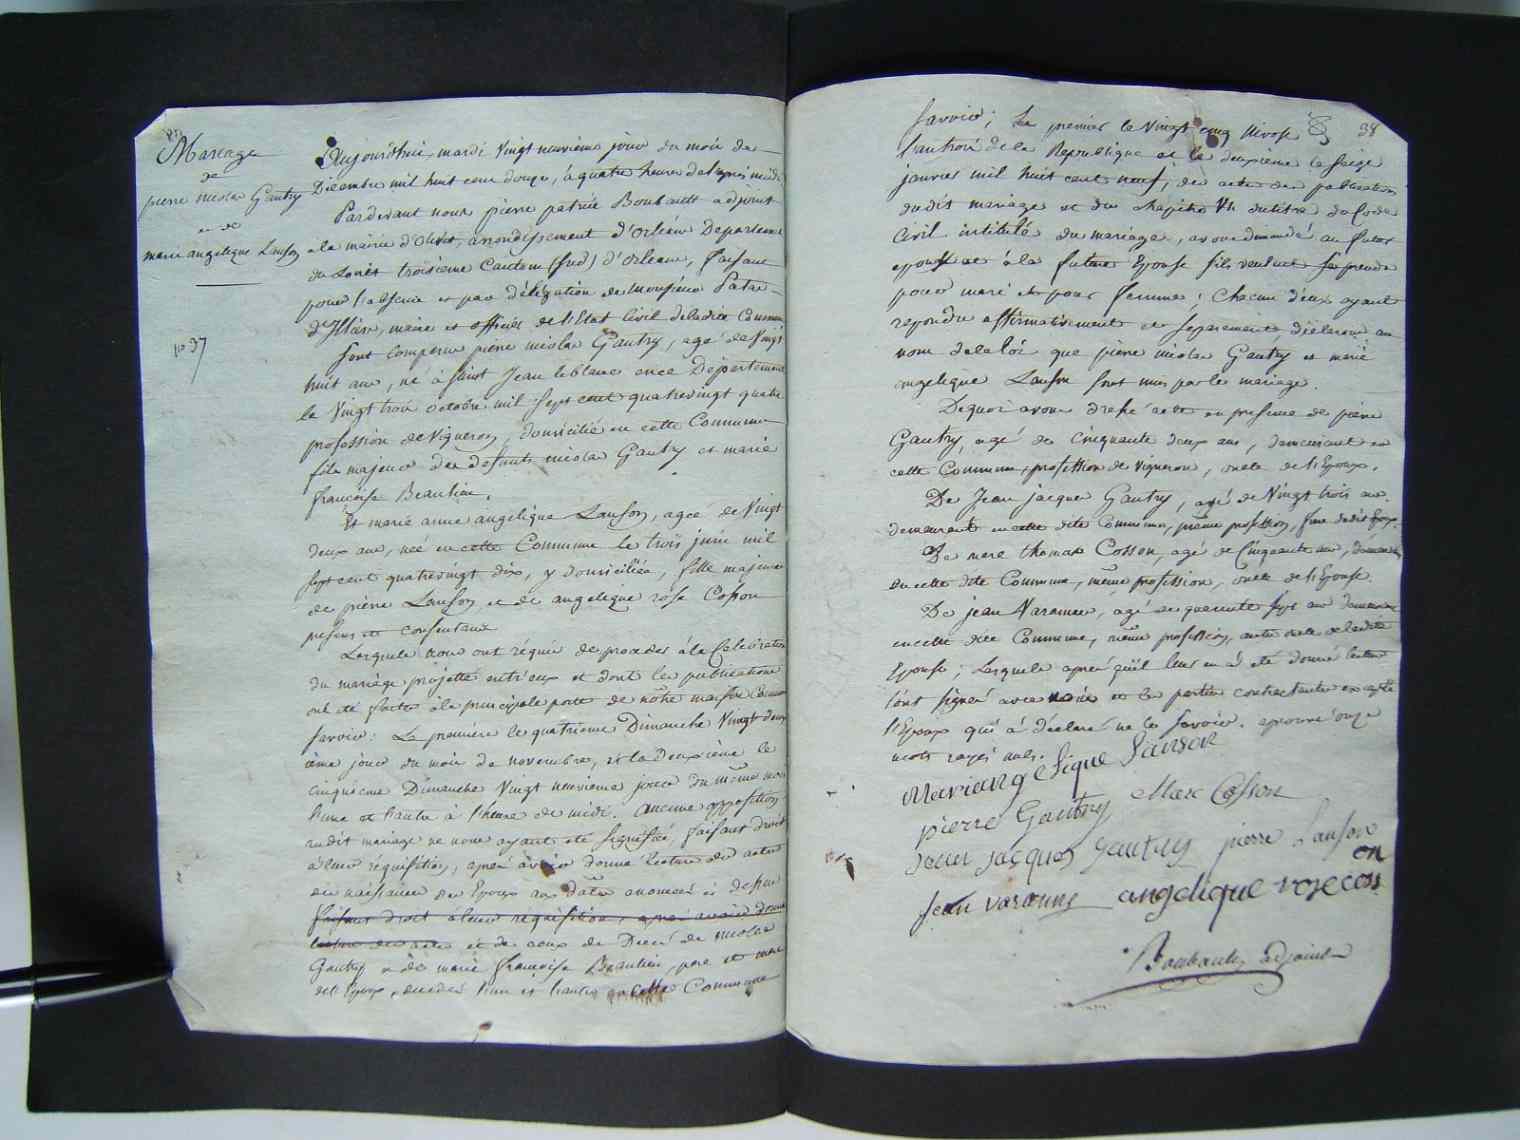 Mariage
de
pierre nicolas Gautry
et de
marie angelique Lanson
no 37
Aujourd'hui, mardi vingt neuvieme jour du mois de
Décembre mil huit cent douze, à quatre heures de l'après midi
Pardevant nous pierre patrice Boubault adjoint
a la mairie d'Olivet, arrondissement d'Orléans Département
du Loiret troisieme Canton (sud) d'Orléans, faisant
pour l'absence et par délégation de Monsieur
maire et officier de l'Etat Civil de ladite Commune
Sont comparus pierre nicolas Gautry, agé de vingt
huit ans, né à Saint Jean le blanc en ce Département
le vingt trois octobre mil sept cent quatrevingt quatre
profession de vigneron, domicilié en cette Commune
fils majeur des defunts nicolas Gautry et marie
françoise Beaulieu.
Et marie anne angelique Lanson, agee de vingt
deux ans, née en cette Commune le trois juin mil
sept cent quatrevingt dix, y domiciliée, fille majeure
de pierre Lanson et de angelique rose Cosson
présens et consentans
Lesquels nous ont réquis de proceder à la Celebration
du mariage projetté entr'eux et dont les publications
ont été faites à la principale porte de nôtre maison Commune
savoir: La première le quatrieme Dimanche vingt deux
ième jour du mois de novembre, et la Deuxième le
cinquième Dimanche vingt neuvieme jour du même mois
l'une et l'autre à l'heure de midi. Aucune opposition
audit mariage ne nous ayant été signifiée, faisant droit
à leur réquisition, après avoir donné lecture des actes
de naissance des Epoux aux dates enoncées ci dessus
faisant droit à leur réquisition, après avoir donné
lecture des actes et de ceux de Décès de nicolas
Gautry et de marie françoise Beaulieu, pere et mere
de l'Epoux, décédés l'un et l'autre en cette Commune
38
Savoir; Le premier le vingt cinq Nivose
l'an trois de la Republique et le deuxième le seize
janvier mil huit cent neuf, des actes des publications
dudit mariage et du chapitre VI du titre du Code
Civil intitulé du mariage, avons demandé au futur
epoux et à la future Epouse s'ils veulent se prendre
pour mari et pour femme; Chacun d'eux ayant
repondu affirmativement et separement, déclarons au
nom de la loi que pierre nicolas Gautry et marie
angelique Lanson sont unis par le mariage.
De quoi avons dressé acte en presence de pierre
Gautry, agé de cinquante deux ans, demeurant en
cette Commune, profession de vigneron, oncle de l'Epoux.
De Jean jacques Gautry, agé de vingt trois ans
demeurant en cette dite Commune, même profession, frere dudit Epoux.
De Marc thomas Cosson, agé de cinquante ans, demeurant
en cette dite Commune, même profession, oncle de l'Epouse.
De jean Varanne, agé de quarante sept ans demeurant
en cette dite Commune, même profession, autre oncle de ladite
Epouse; Lesquels après qu'il leur en à été donné lecture
l'ont signé avec nous et les parties contractantes excepté
l'Epoux qui à déclaré ne le savoir. aprouvé onze
mots rayés nuls.
Mariangelique Lanson
pierre Gautry Marc Cosson
Jean Jacques Gautry pierre Lanson
jean varanne angelique rose cosson
Boubault adjoint